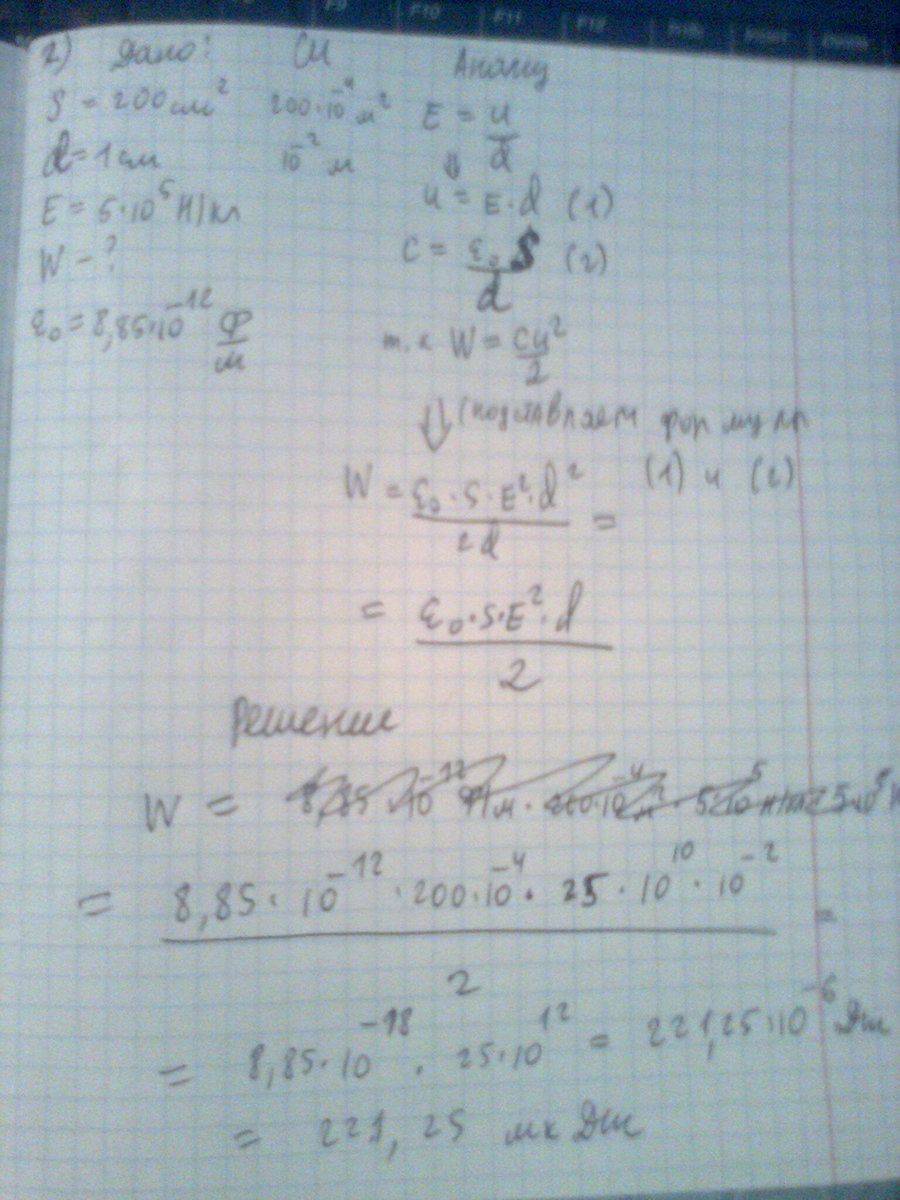 F9 F10 F11 F12
2) Дано: СИ Анализ
S = 200 см² 200·10⁻⁴ м² E = U/d
d = 1 см 10⁻² м ⇓
U = E·d (1)
E = 5·10⁵ Н/Кл
W - ? C = ε₀S/d (2)
ε₀ = 8,85·10⁻¹² Ф/м
т.к W = CU²/2
⇓ (подставляем формулы
(1) и (2)
W = ε₀·S·E²·d²/2d =
= ε₀·S·E²·d/2
Решение
W =
= 8,85·10⁻¹²·200·10⁻⁴·25·10¹⁰·10⁻²/2 =
= 8,85·10⁻¹⁸·25·10¹² = 221,25·10⁻⁶ Дж
= 221,25 мк Дж